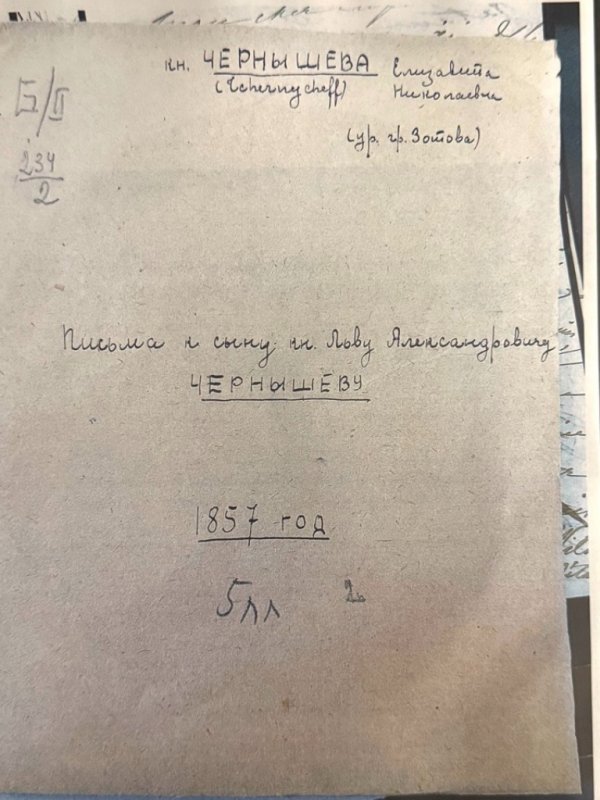 кн. ЧЕРНЫШЕВА Елизавета
(Tchernycheff) Николаевна
(ур. гр. Зотова)
234
2
Письма к сыну кн. Льву Александровичу
ЧЕРНЫШЕВУ
1857 год
5лл 2